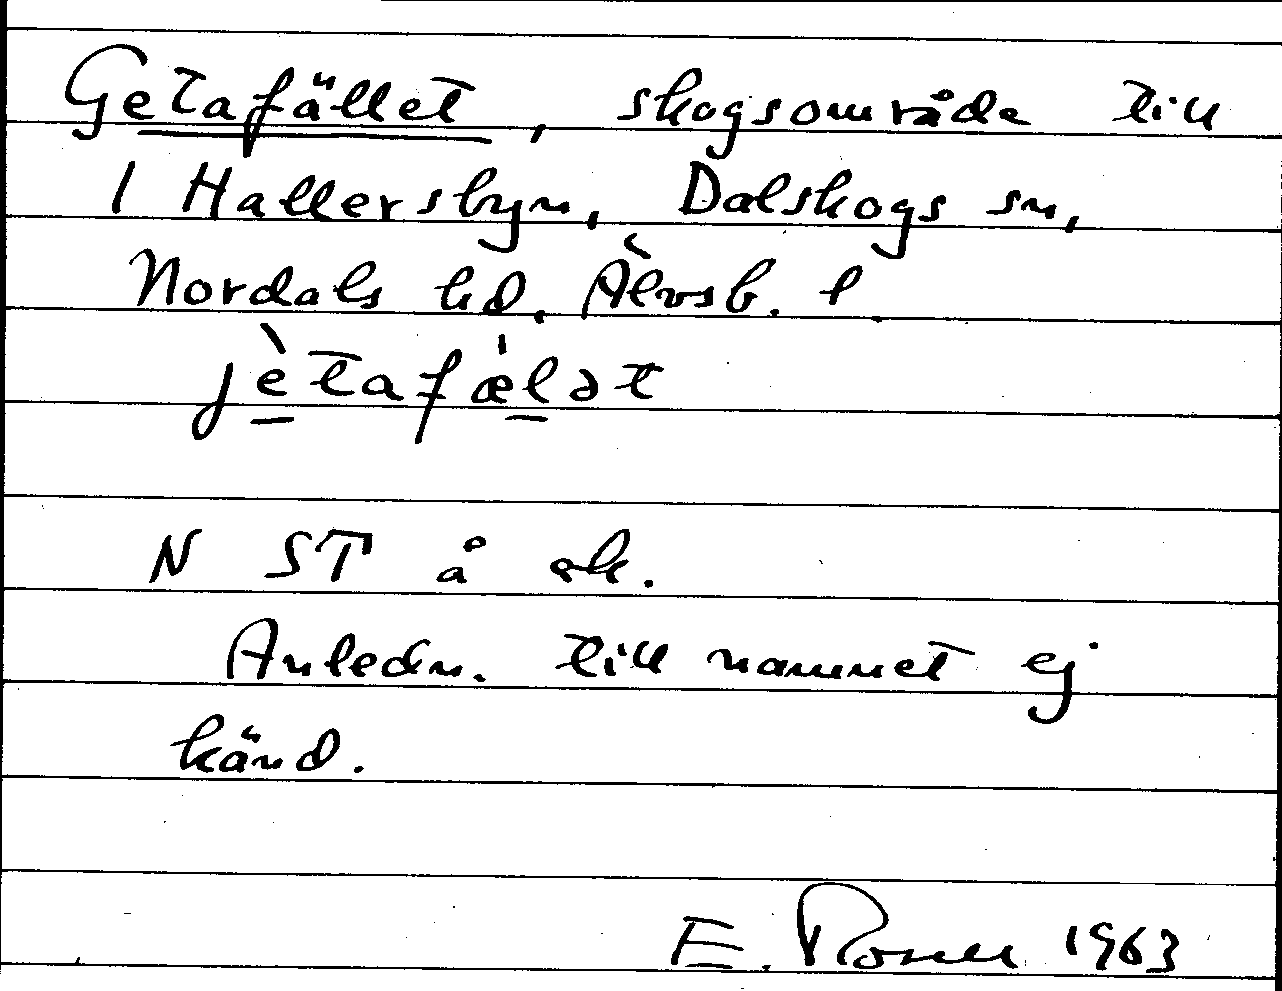 Getafället, skogsområde till
1 Hallersbyn, Dalskogs sn,
Nordals hd, Älvsb. l.
jètafæ̍lət
N ST å ek.
Anledn. till namnet ej
känd.
E. Rosell 1963